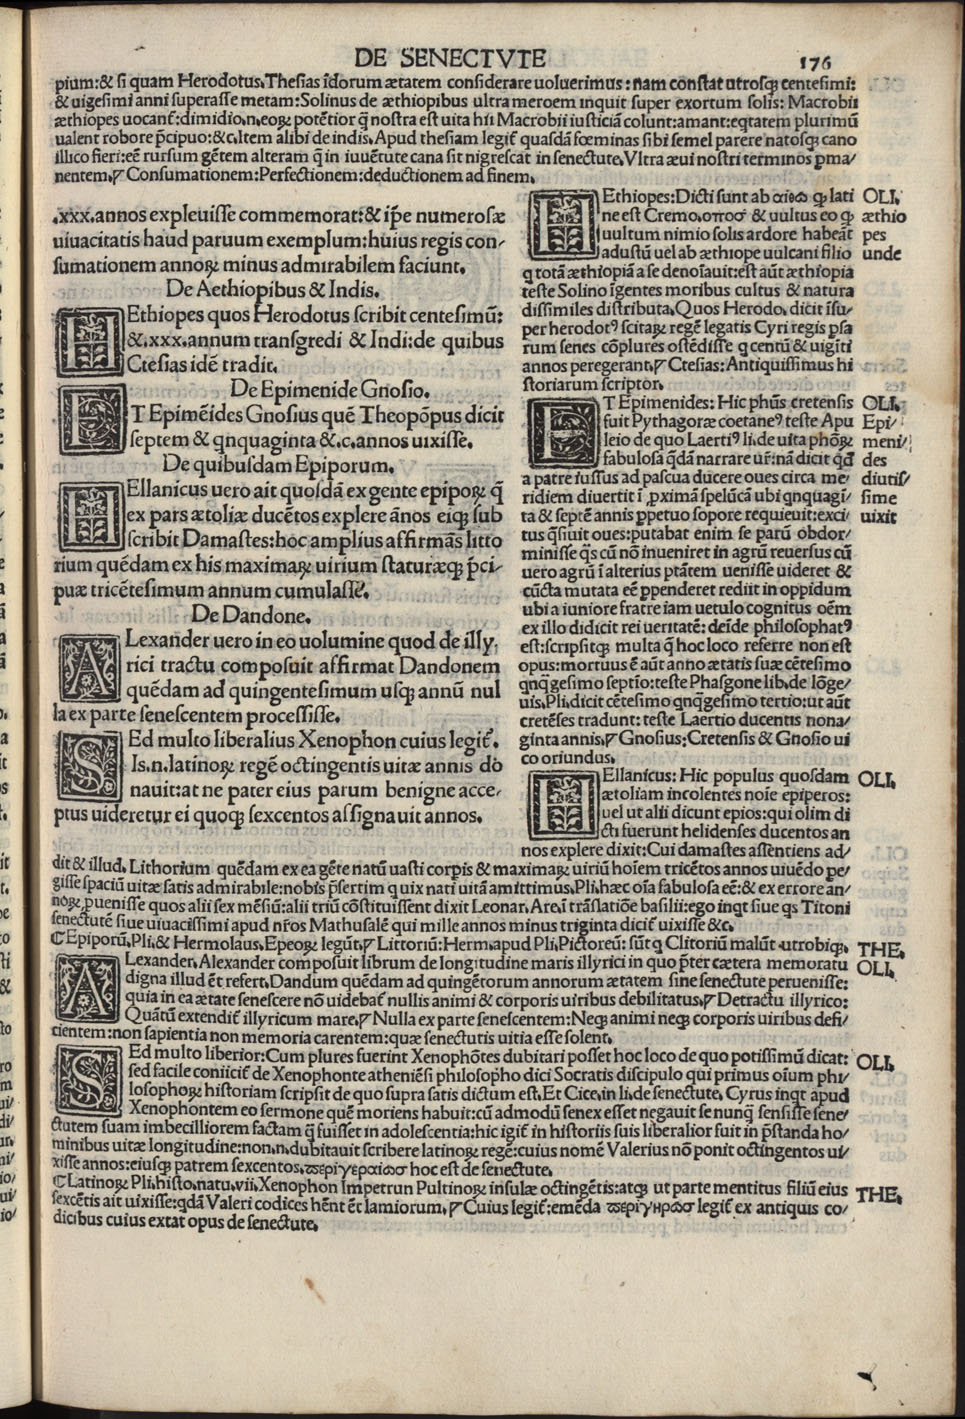 DE SENECTVTE 176
pium:& si quam Herodotus,Thesias īdorum ætatem considerare uoluerimus: nam constat utrosqꝫ centesimi:
& uigesimi anni superasse metam:Solinus de æthiopibus ultra meroem inquit super exortum solis: Macrobii
æthiopes uocant̃:dimidio.n.eoꝝ potētior q̃ nostra est uita hii Macrobii iusticiā colunt:amant:eqtatem plurimū
ualent robore p̄cipuo:&c.Item alibi de indis.Apud thesiam legit̃ quasdā fœminas sibi semel parere natosqꝫ cano
illico fieri:eē rursum gētem alteram q̃ in iuuētute cana sit nigrescat in senectute.Vltra æui nostri terminos ꝑma/
nentem.⁋ Consumationem:Perfectionem:deductionem ad finem.
.xxx.annos expleuisse commemorat:& ip̄e numerosæ
uiuacitatis haud paruum exemplum:huius regis con/
sumationem annoꝝ minus admirabilem faciunt.
De Aethiopibus & Indis.
AEthiopes quos Herodotus scribit centesimū:
&.xxx.annum transgredi & Indi:de quibus
Ctesias idē tradit.
De Epimenide Gnosio.
ET Epimēides Gnosius quē Theopōpus dicit
septem & qnquaginta &.c.annos uixisse.
De quibusdam Epiporum.
HEllanicus uero ait quosdā ex gente epipoꝝ q̃
ex pars ætoliæ ducētos explere ānos eiqꝫ sub
scribit Damastes:hoc amplius affirmās litto
rium quēdam ex his maximaꝝ uirium staturæqꝫ p̄ci/
puæ tricētesimum annum cumulasse.
De Dandone.
ALexander uero in eo uolumine quod de illy.
rici tractu composuit affirmat Dandonem
quēdam ad quingentesimum usqꝫ annū nul
la ex parte senescentem processisse.
SEd multo liberalius Xenophon cuius legit̃.
Is.n.latinoꝝ regē octingentis uitæ annis do
nauit:at ne pater eius parum benigne acce/
ptus uideretur ei quoqꝫ sexcentos assignauit annos.
AEthiopes:Dicti sunt ab αιθω ꝙ lati
ne est Cremo.οπτοσ & uultus eo ꝙ
uultum nimio solis ardore habeāt
adustū uel ab æthiope uulcani filio
q totā æthiopiā a se denoīauit:est aūt æthiopia
teste Solino īgentes moribus cultus & natura
dissimiles distributa.Quos Herodo.dicit īsu/
per herodotꝰ scitaꝝ regē legatis Cyri regis p̄sa
rum senes cōplures ostēdisse q centū & uigīti
annos peregerant.⁋ Ctesias:Antiquissimus hi
storiarum scriptor.
OLI.
æthio
pes
unde
ET Epimenides: Hic phūs cretensis
fuit Pythagoræ coetaneꝰ teste Apu
leio de quo Laertiꝰ li.de uita phōꝝ
fabulosa q̄dā narrare ur̄:nā dicit q̄d
a patre iussus ad pascua ducere oues circa me/
ridiem diuertit ī ꝓximā spelūcā ubi qnquagī/
ta & septē annis ꝑpetuo sopore requieuit:exci/
tus q̄siuit oues:putabat enim se parū obdor/
minisse q̄s cū nō inueniret in agrū reuersus cū
uero agrū ī alterius ptātem uenisse uideret &
cūcta mutata eē ꝑpenderet rediit in oppidum
ubi a iuniore fratre iam uetulo cognitus oēm
ex illo didicit rei ueritatē: deīde philosophatꝰ
est:scripsitqꝫ multa q̄ hoc loco referre non est
opus:mortuus ē aūt anno ætatis suæ cētesimo
qnqgesimo septīo:teste Phasgone lib.de lōge/
uis.Pli.dicit cētesimo qnqgesimo tertio:ut aūt
cretēses tradunt: teste Laertio ducentis nona/
ginta annis.⁋ Gnosius:Cretensis & Gnosio ui
co oriundus.
OLI.
Epi/
meni/
des
diutis/
sime
uixit
HEllanicus: Hic populus quosdam
ætoliam incolentes noīe epiperos:
uel ut alii dicunt epios:qui olim di
cti fuerunt helidenses ducentos an
nos explere dixit:Cui damastes assentiens ad/
OLI.
dit & illud. Lithorium quēdam ex ea gēte natū uasti corpis & maximaꝝ uiriū hoīem tricētos annos uiuēdo pe/
gisse spaciū uitæ satis admirabile:nobis p̄sertim q uix nati uitā amittimus.Pli.hæc oīa fabulosa eē:& ex errore an/
noꝝ ꝓuenisse quos alii sex mēsiū:alii triū cōstituissent dixit Leonar.Are.ī trāslatiōe basilii:ego inqt siue qs Titoni
senectutē siue uiuacissimi apud nr̄os Mathusalē qui mille annos minus triginta dicit̃ uixisse &c.
⁋Epiporū.Pli.& Hermolaus.Epeoꝝ legūt.⁋ Littoriū: Herm.apud Pli.Pictoreū: sūt q Clitoriū malūt utrobiqꝫ. THE.
ALexander.Alexander composuit librum de longitudine maris illyrici in quo p̄ter cætera memoratu OLI.
digna illud ēt refert.Dandum quēdam ad quingētorum annorum ætatem sine senectute peruenisse:
quia in ea ætate senescere nō uidebat̃ nullis animi & corporis uiribus debilitatus.⁋ Detractu illyrico:
Quātū extendit̃ illyricum mare.⁋ Nulla ex parte senescentem:Neqꝫ animi neqꝫ corporis uiribus defi/
cientem:non sapientia non memoria carentem:quæ senectutis uitia esse solent.
SEd multo liberior:Cum plures fuerint Xenophōtes dubitari posset hoc loco de quo potissimū dicat: OLI.
sed facile coniicit̃ de Xenophonte atheniēsi philosopho dici Socratis discipulo qui primus oīum phi/
losophoꝝ historiam scripsit de quo supra satis dictum est.Et Cice.in li.de senectute. Cyrus inqt apud
Xenophontem eo sermone quē moriens habuit:cū admodū senex esset negauit se nunq̄ sensisse sene/
ctutem suam imbecilliorem factam q̄ fuisset in adolescentia:hic igit̃ in historiis suis liberalior fuit in p̄standa ho/
minibus uitæ longitudine:non.n.dubitauit scribere latinoꝝ regē:cuius nomē Valerius nō ponit octingentos ui/
xisse annos:eiusqꝫ patrem sexcentos.περιγεραιωσ hoc est de senectute.
⁋Latinoꝝ Pli.histo.natu.vii.Xenophon Impetrun Pultinoꝝ insulæ octingētis:atqꝫ ut parte mentitus filiū eius THE.
sexcētis ait uixisse:qdā Valeri codices hēnt ēt lamiorum.⁋ Cuius legit̃:emēda περιγηρωσ legit̃ ex antiquis co/
dicibus cuius extat opus de senectute.